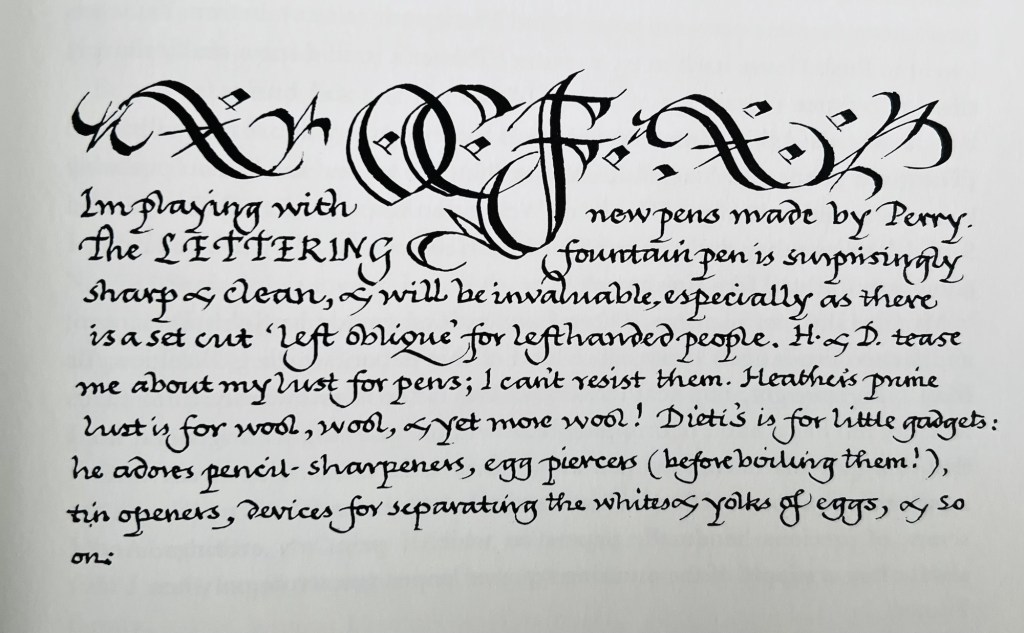 Im playing with new pens made by Perry.
The LETTERING fountain pen is surprisingly
sharp & clean, & will be invaluable, especially as there
is a set cut 'left oblique' for lefthanded people. H. & D. tease
me about my lust for pens; I can't resist them. Heather's prime
lust is for wool, wool, & yet more wool! Dieti's is for little gadgets:
he adores pencil-sharpeners, egg piercers (before boiling them!),
tin openers, devices for separating the whites & yolks of eggs, & so
on: